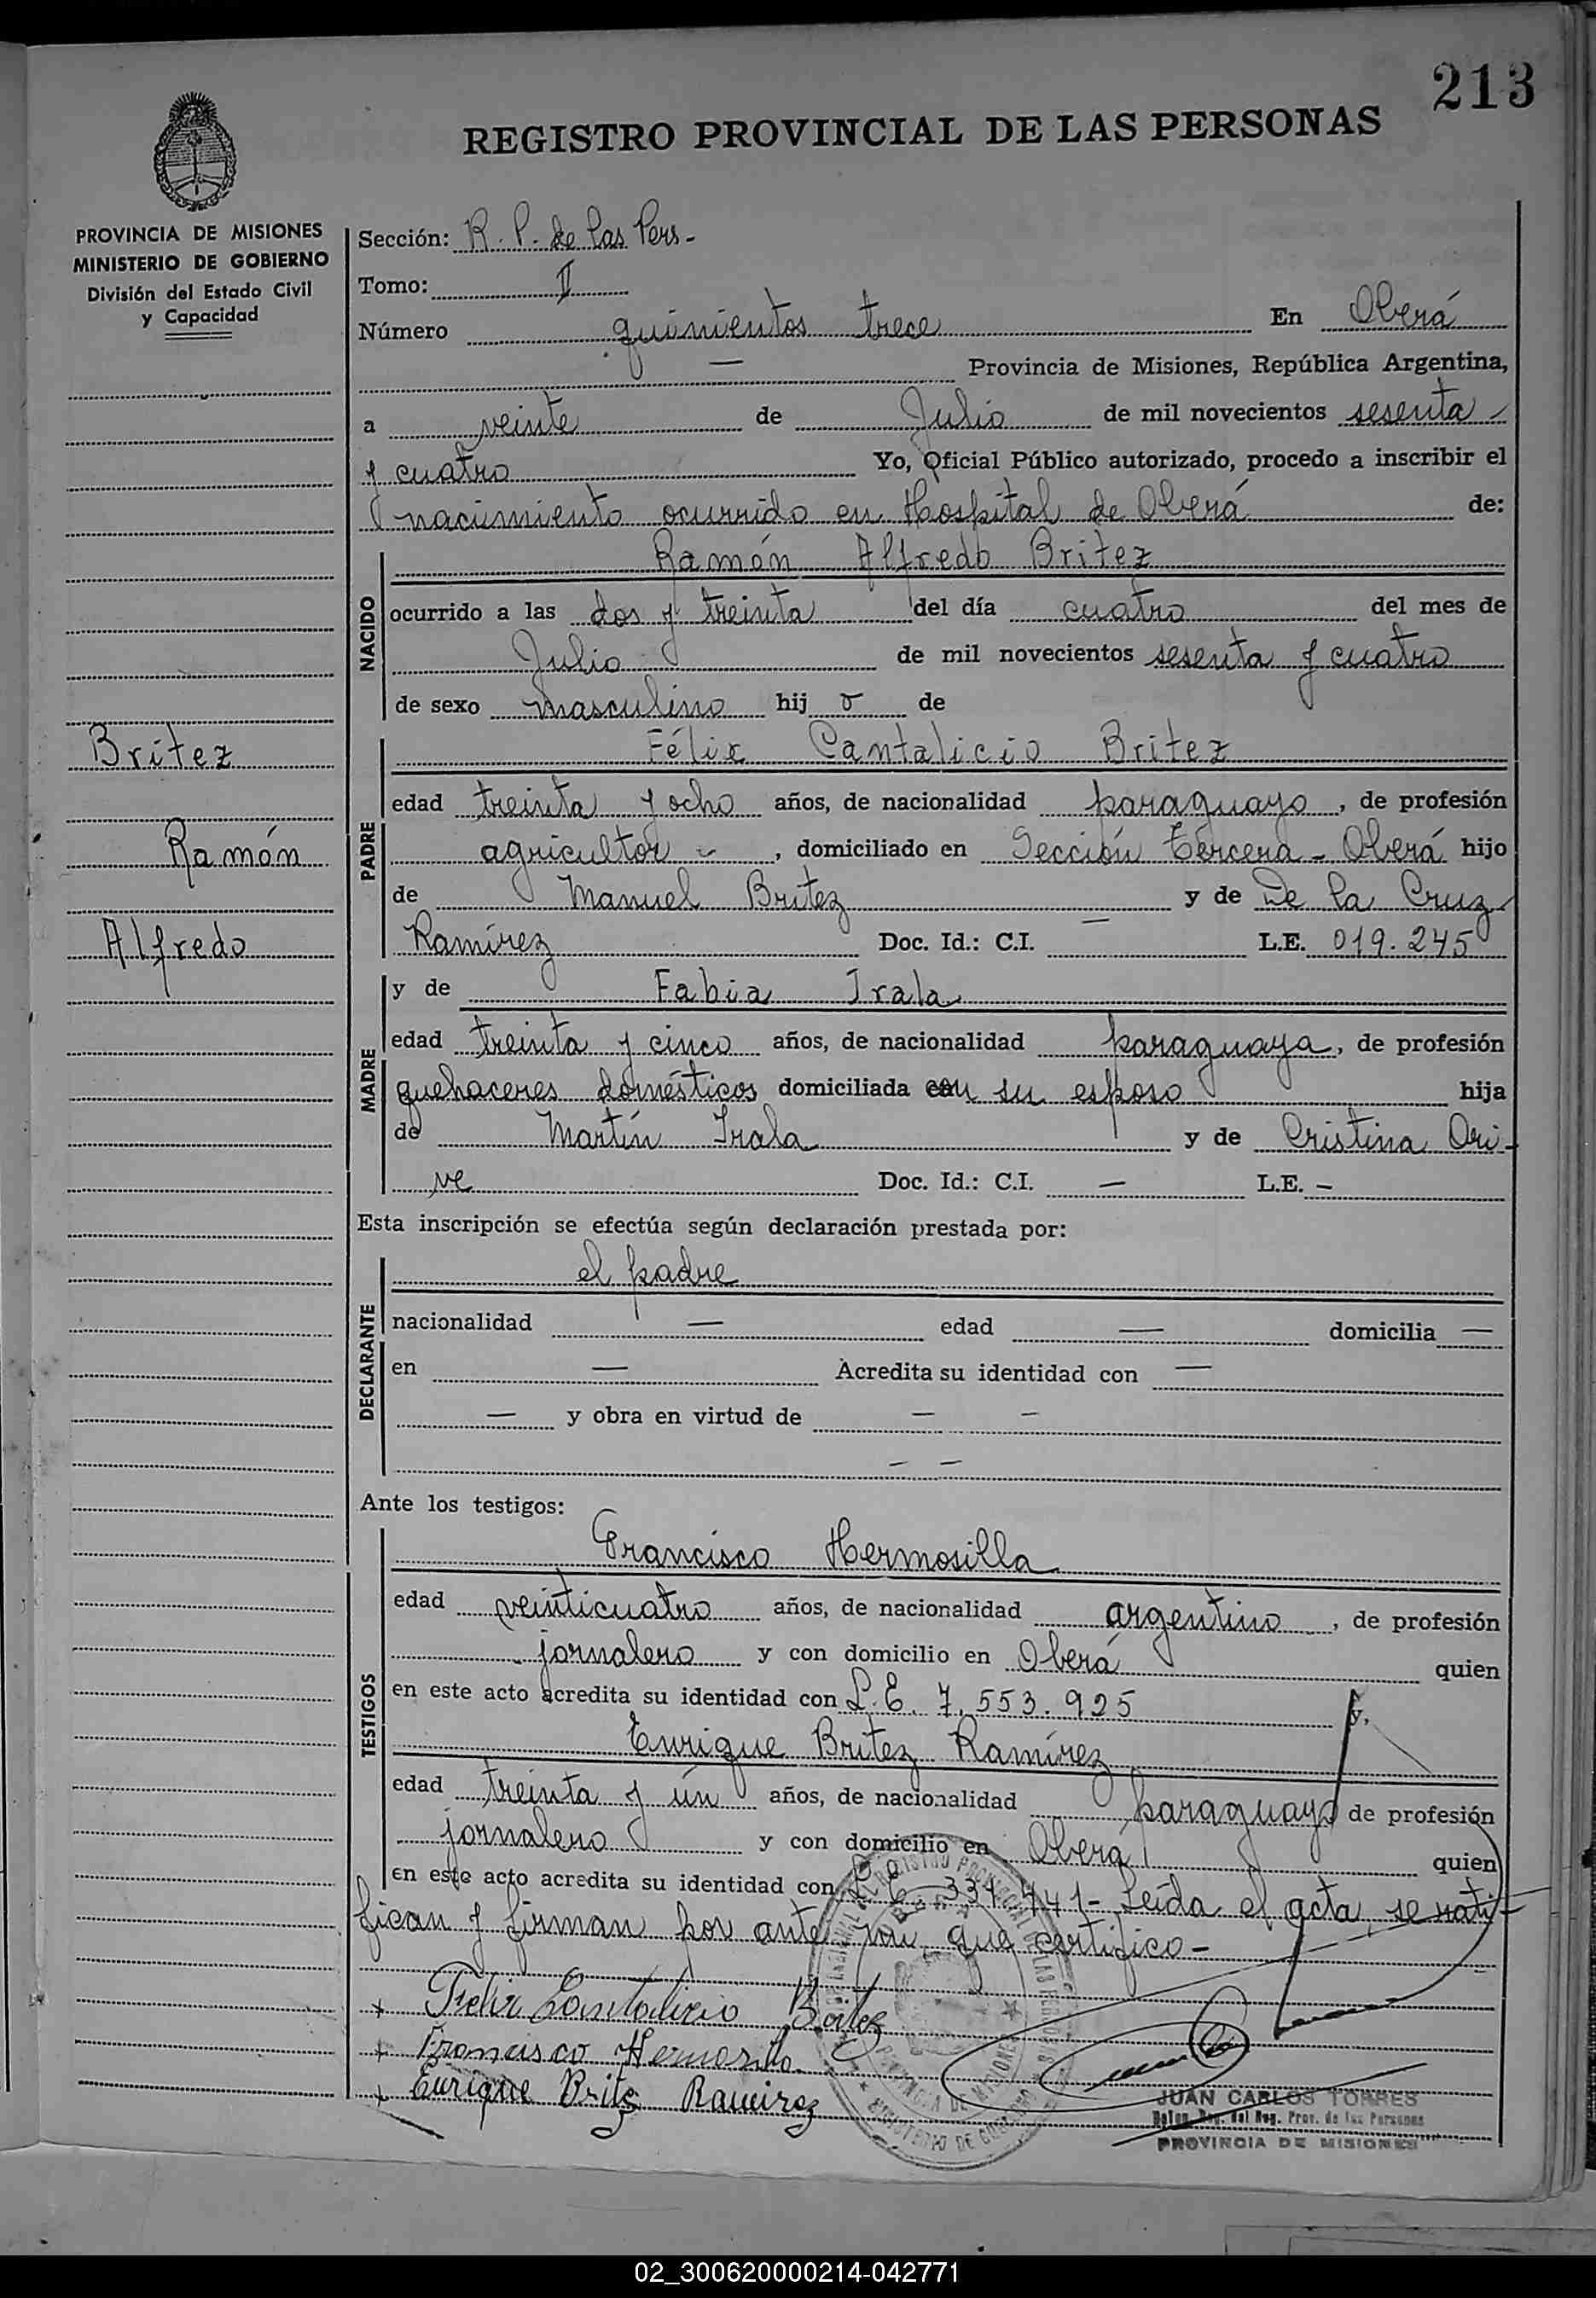 213
REGISTRO PROVINCIAL DE LAS PERSONAS
PROVINCIA DE MISIONES
MINISTERIO DE GOBIERNO
División del Estado Civil
y Capacidad
Sección: R. P. de las Pers-
Tomo: II
Número quinientos trece En Oberá
— Provincia de Misiones, República Argentina,
a veinte de Julio de mil novecientos sesenta
y cuatro Yo, Oficial Público autorizado, procedo a inscribir el
nacimiento ocurrido en Hospital de Oberá de:
NACIDO
Ramón Alfredo Britez
ocurrido a las dos y treinta del día cuatro del mes de
Julio de mil novecientos sesenta y cuatro
de sexo masculino hij o de
Britez
Ramón
Alfredo
PADRE
Félix Cantalicio Britez
edad treinta y ocho años, de nacionalidad paraguayo, de profesión
agricultor -, domiciliado en Sección Tercera - Oberá hijo
de Manuel Britez y de De la Cruz
Ramírez Doc. Id.: C.I. — L.E. 019.245
MADRE
y de Fabia Irala
edad treinta y cinco años, de nacionalidad paraguaya, de profesión
quehaceres domésticos domiciliada con su esposo hija
de Martín Irala y de Cristina Ori-
ve Doc. Id.: C.I. — L.E. —
Esta inscripción se efectúa según declaración prestada por:
DECLARANTE
el padre
nacionalidad — edad — domicilia —
en — Acredita su identidad con —
— y obra en virtud de — —
— —
Ante los testigos:
TESTIGOS
Francisco Hermosilla
edad veinticuatro años, de nacionalidad argentino, de profesión
jornalero y con domicilio en Oberá quien
en este acto acredita su identidad con L.E. 7.553.925 y,
Enrique Britez Ramírez
edad treinta y ún años, de nacionalidad paraguayo de profesión
jornalero y con domicilio en Oberá quien
en este acto acredita su identidad con 331.441- Leída el acta, se rati-
fican y firman por ante mí, que certifico-
x Felix Cantalicio Britez
x Francisco Hermosilla
x Enrique Britez Ramirez
PROVINCIA DE MISIONES
MINISTERIO DE GOBIERNO
JUAN CARLOS TORRES
del Reg. Prov. de las Personas
PROVINCIA DE MISIONES
02_300620000214-042771